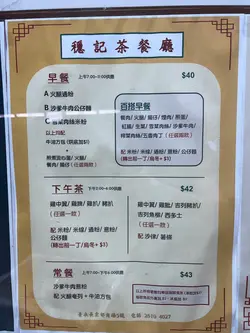 穩記茶餐廳
早餐 上午7:00-11:00供應 $40
A 火腿通粉
B 沙爹牛肉公仔麵
C 雪菜肉絲米粉
以上均配
牛油方飽
+
煎煮蛋/
火腿/
百搭早餐
餐肉/火腿/腸仔/煙肉/煎蛋/
紅腸/生菜/雪菜肉絲/沙爹牛肉/
榨菜肉絲/五香肉丁 (任選兩款)
配 米粉/米線/通粉/意粉/公仔麵
(轉出前一丁/烏冬+ $3)
下午茶 下午2:00-6:00供應 $42
雞中翼/雞脾/雞扒/豬扒
(任選一款)
配 米粉/米線/通粉/意粉/公仔麵
(轉出前一丁/烏冬+ $3)
雞中翼/雞脾/吉列豬扒/
吉列魚柳/西多士
(任選一款)
配 沙律/薯條
常餐 $43
沙爹牛肉意粉
配 火腿奄列 + 牛油方飽